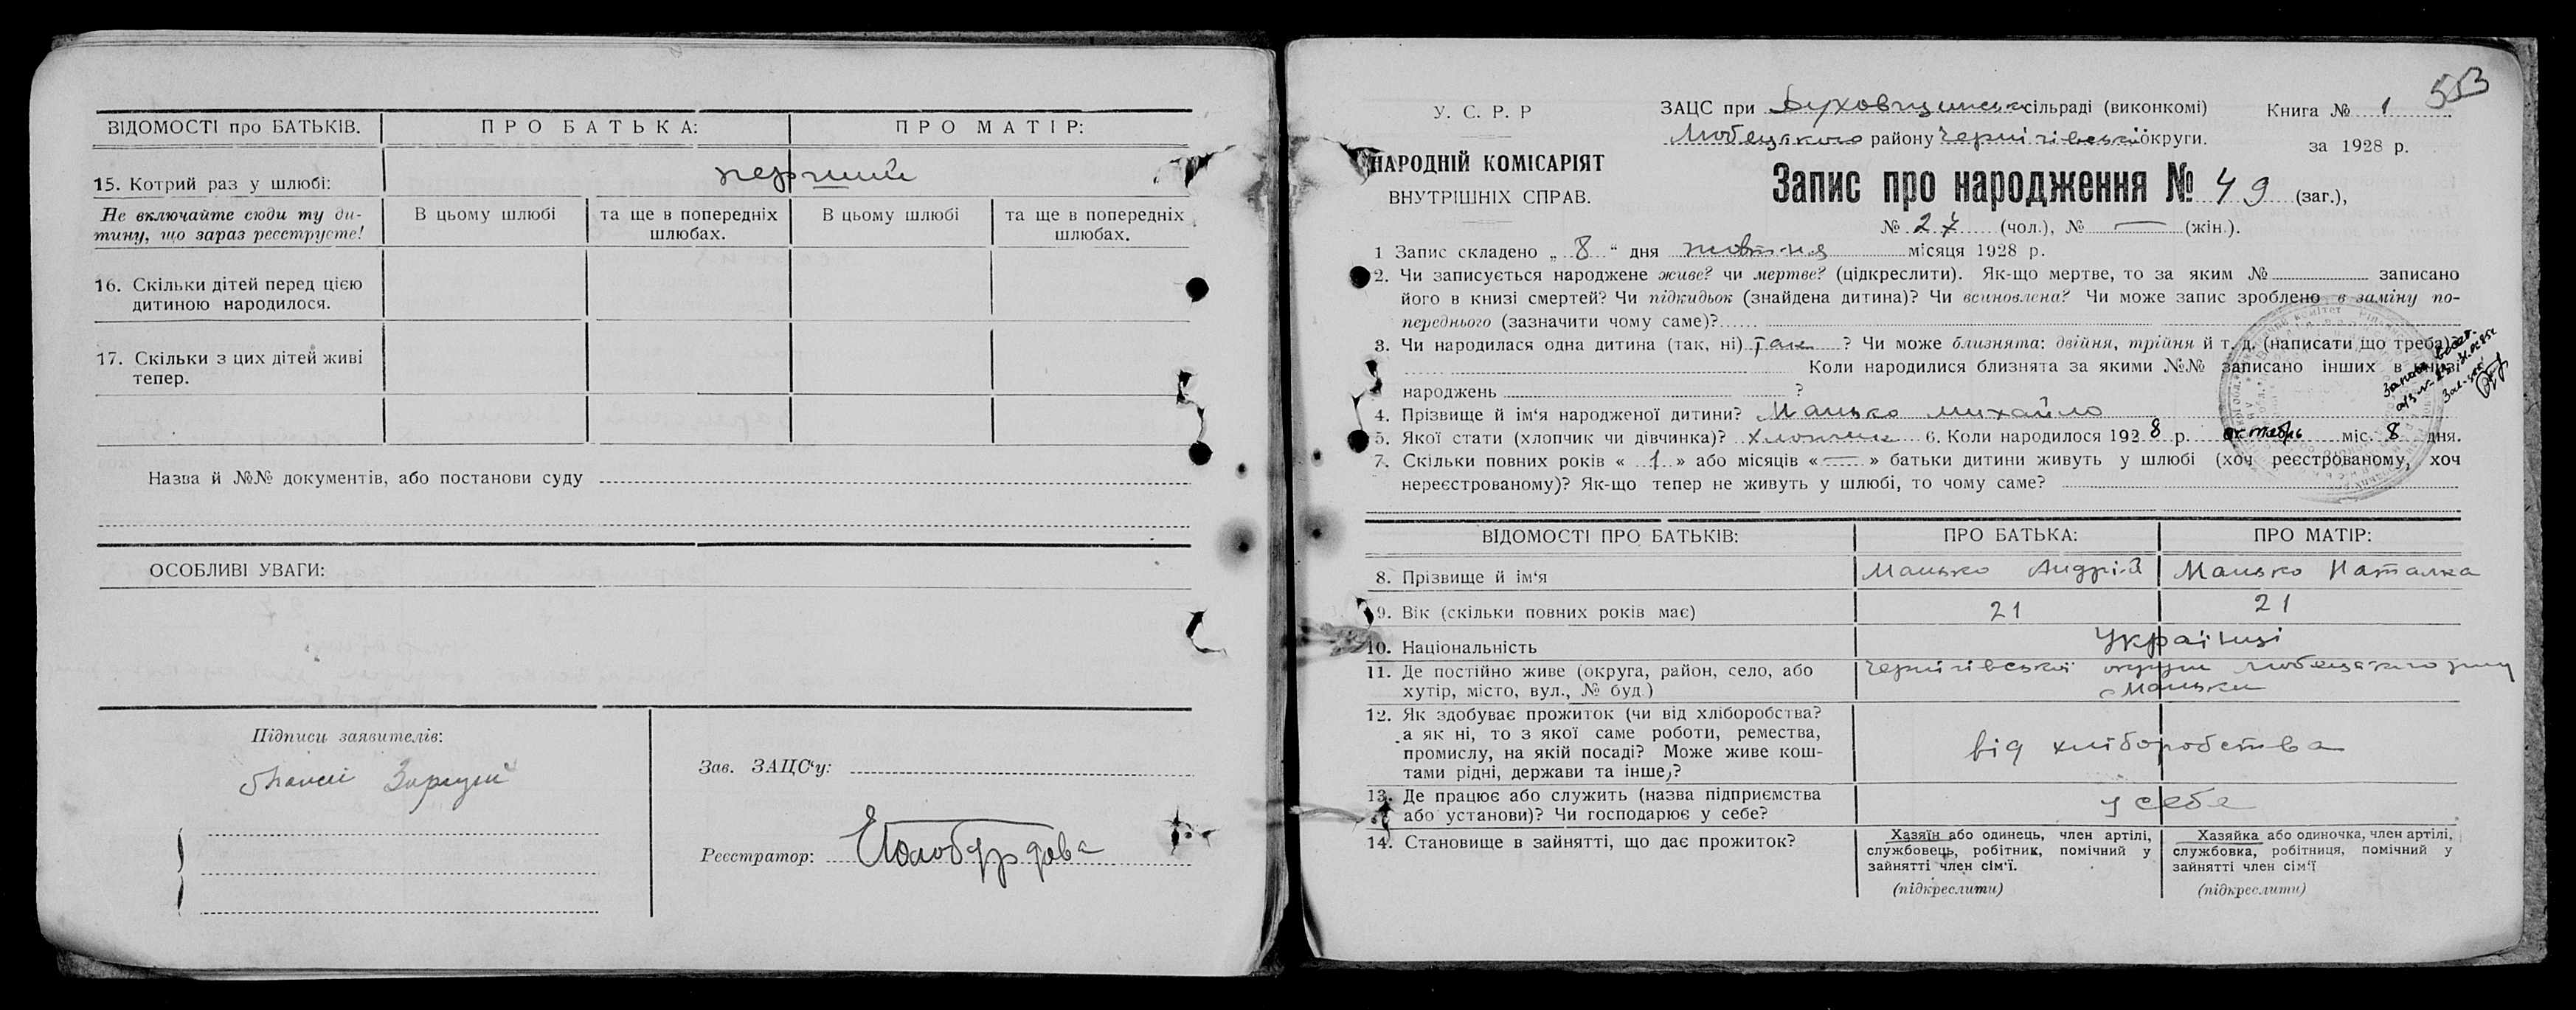 ВІДОМОСТІ про БАТЬКІВ. ПРО БАТЬКА: ПРО МАТІР:
15. Котрий раз у шлюбі: перший
Не включайте сюди ту ди-
тину, що зараз реєструєте!
В цьому шлюбі
та ще в попередніх
шлюбах.
В цьому шлюбі
та ще в попередніх
шлюбах.
16. Скільки дітей перед цією
дитиною народилося.
17. Скільки з цих дітей живі
тепер.
Назва й №№ документів, або постанови суду
ОСОБЛИВІ УВАГИ:
Підписи заявителів:
Зав. ЗАЦС‘у:
Реєстратор:
553
У. С. Р. Р
НАРОДНІЙ КОМІСАРІЯТ
ВНУТРІШНІХ СПРАВ.
ЗАЦС при сільраді (виконкомі)
Любецького району Чернігівської округи.
Книга № 1
за 1928 р.
Запис про народження № 49 (заг.),
№ 27 (чол.), № — (жін.).
1 Запис складено „ 8 “ дня жовтня місяця 1928 р.
2. Чи записується народжене живе? чи мертве? (цідкреслити). Як-що мертве, то за яким № записано
його в книзі смертей? Чи підкидьок (знайдена дитина)? Чи всиновлена? Чи може запис зроблено в заміну по-
переднього (зазначити чому саме)?
3. Чи народилася одна дитина (так, ні) так ? Чи може близнята: двійня, трійня й т. д. (написати що треба)?
Коли народилися близнята за якими №№ записано інших в книзі
народжень ?
4. Прізвище й ім‘я народженої дитини? Манько Михайло
5. Якої стати (хлопчик чи дівчинка)? хлопчик 6. Коли народилося 1928 р. октябрь міс. 8 дня.
7. Скільки повних років « 1 » або місяців « — » батьки дитини живуть у шлюбі (хоч реєстрованому, хоч
нереєстрованому)? Як-що тепер не живуть у шлюбі, то чому саме?
ВІДОМОСТІ ПРО БАТЬКІВ: ПРО БАТЬКА: ПРО МАТІР:
8. Прізвище й ім‘я Манько Андрій Манько Наталка
9. Вік (скільки повних років має) 21 21
10. Національність Українці
11. Де постійно живе (округа, район, село, або
хутір, місто, вул., № буд.)
Чернігівської округи Любецького р-ну
с Маньки
12. Як здобуває прожиток (чи від хліборобства?
а як ні, то з якої саме роботи, ремества,
промислу, на якій посаді? Може живе кош-
тами рідні, держави та інше,?
від хліборобства
13. Де працює або служить (назва підприємства
або установи)? Чи господарює у себе?
у себе
14. Становище в зайнятті, що дає прожиток?
Хазяїн або одинець, член артілі,
службовець, робітник, помічний у
зайнятті член сім‘ї.
(підкреслити)
Хазяйка або одиночка, член артілі,
службовка, робітниця, помічний у
зайнятті член сім‘ї
(підкреслити)